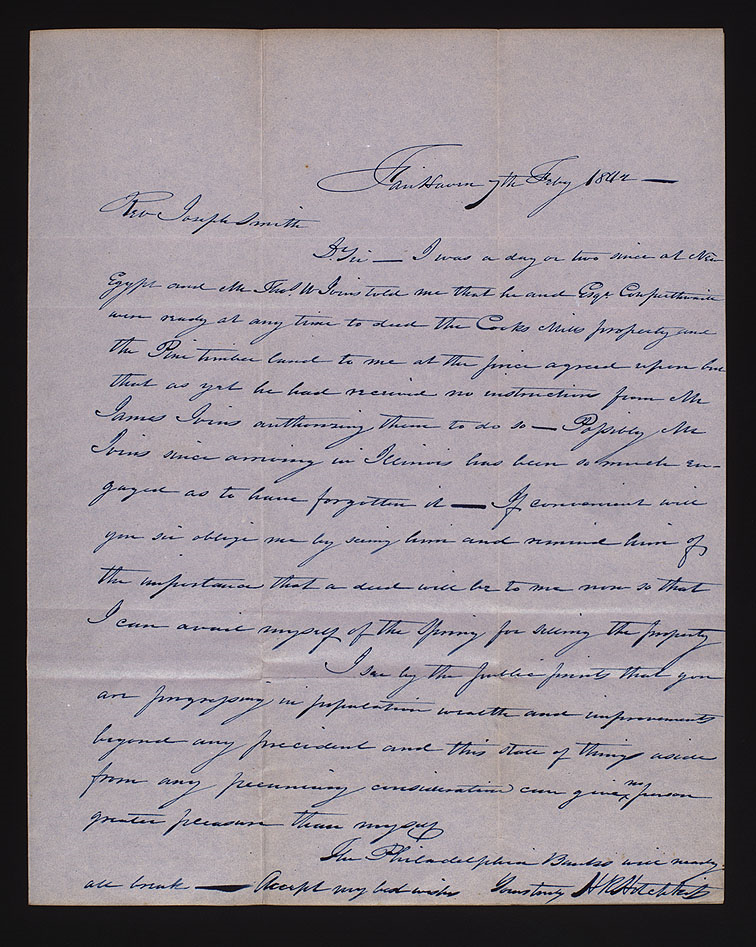 Fair Haven 7th Feby 1842 —
Rev Joseph Smith
Dr Sir — I was a day or two since at New
Egypt and Mr Thos. W Ivins told me that he and Esqr Cowperthwaite
were ready at any time to deed the Cooks Mills property and
the Pine timber land to me at the price agreed upon but
that as yet he had received no instructions from Mr
James Ivins authorizing them to do so — Possibly Mr
Ivins since arriving in Illinois has been so much en-
gaged as to have forgotten it — If convenient will
you sir oblige me by seeing him and remind him of
the importance that a deed will be to me now so that
I can avail myself of the Spring for selling the property
I see by the public prints that you
are progressing in population wealth and improvements
beyond any precident and this state of things aside
from any pecuniary consideration can give no person
greater pleasure than myself
The Philadelphia Banks will nearly
all break — Accept my best wishes Yours truly H R Hotchkiss